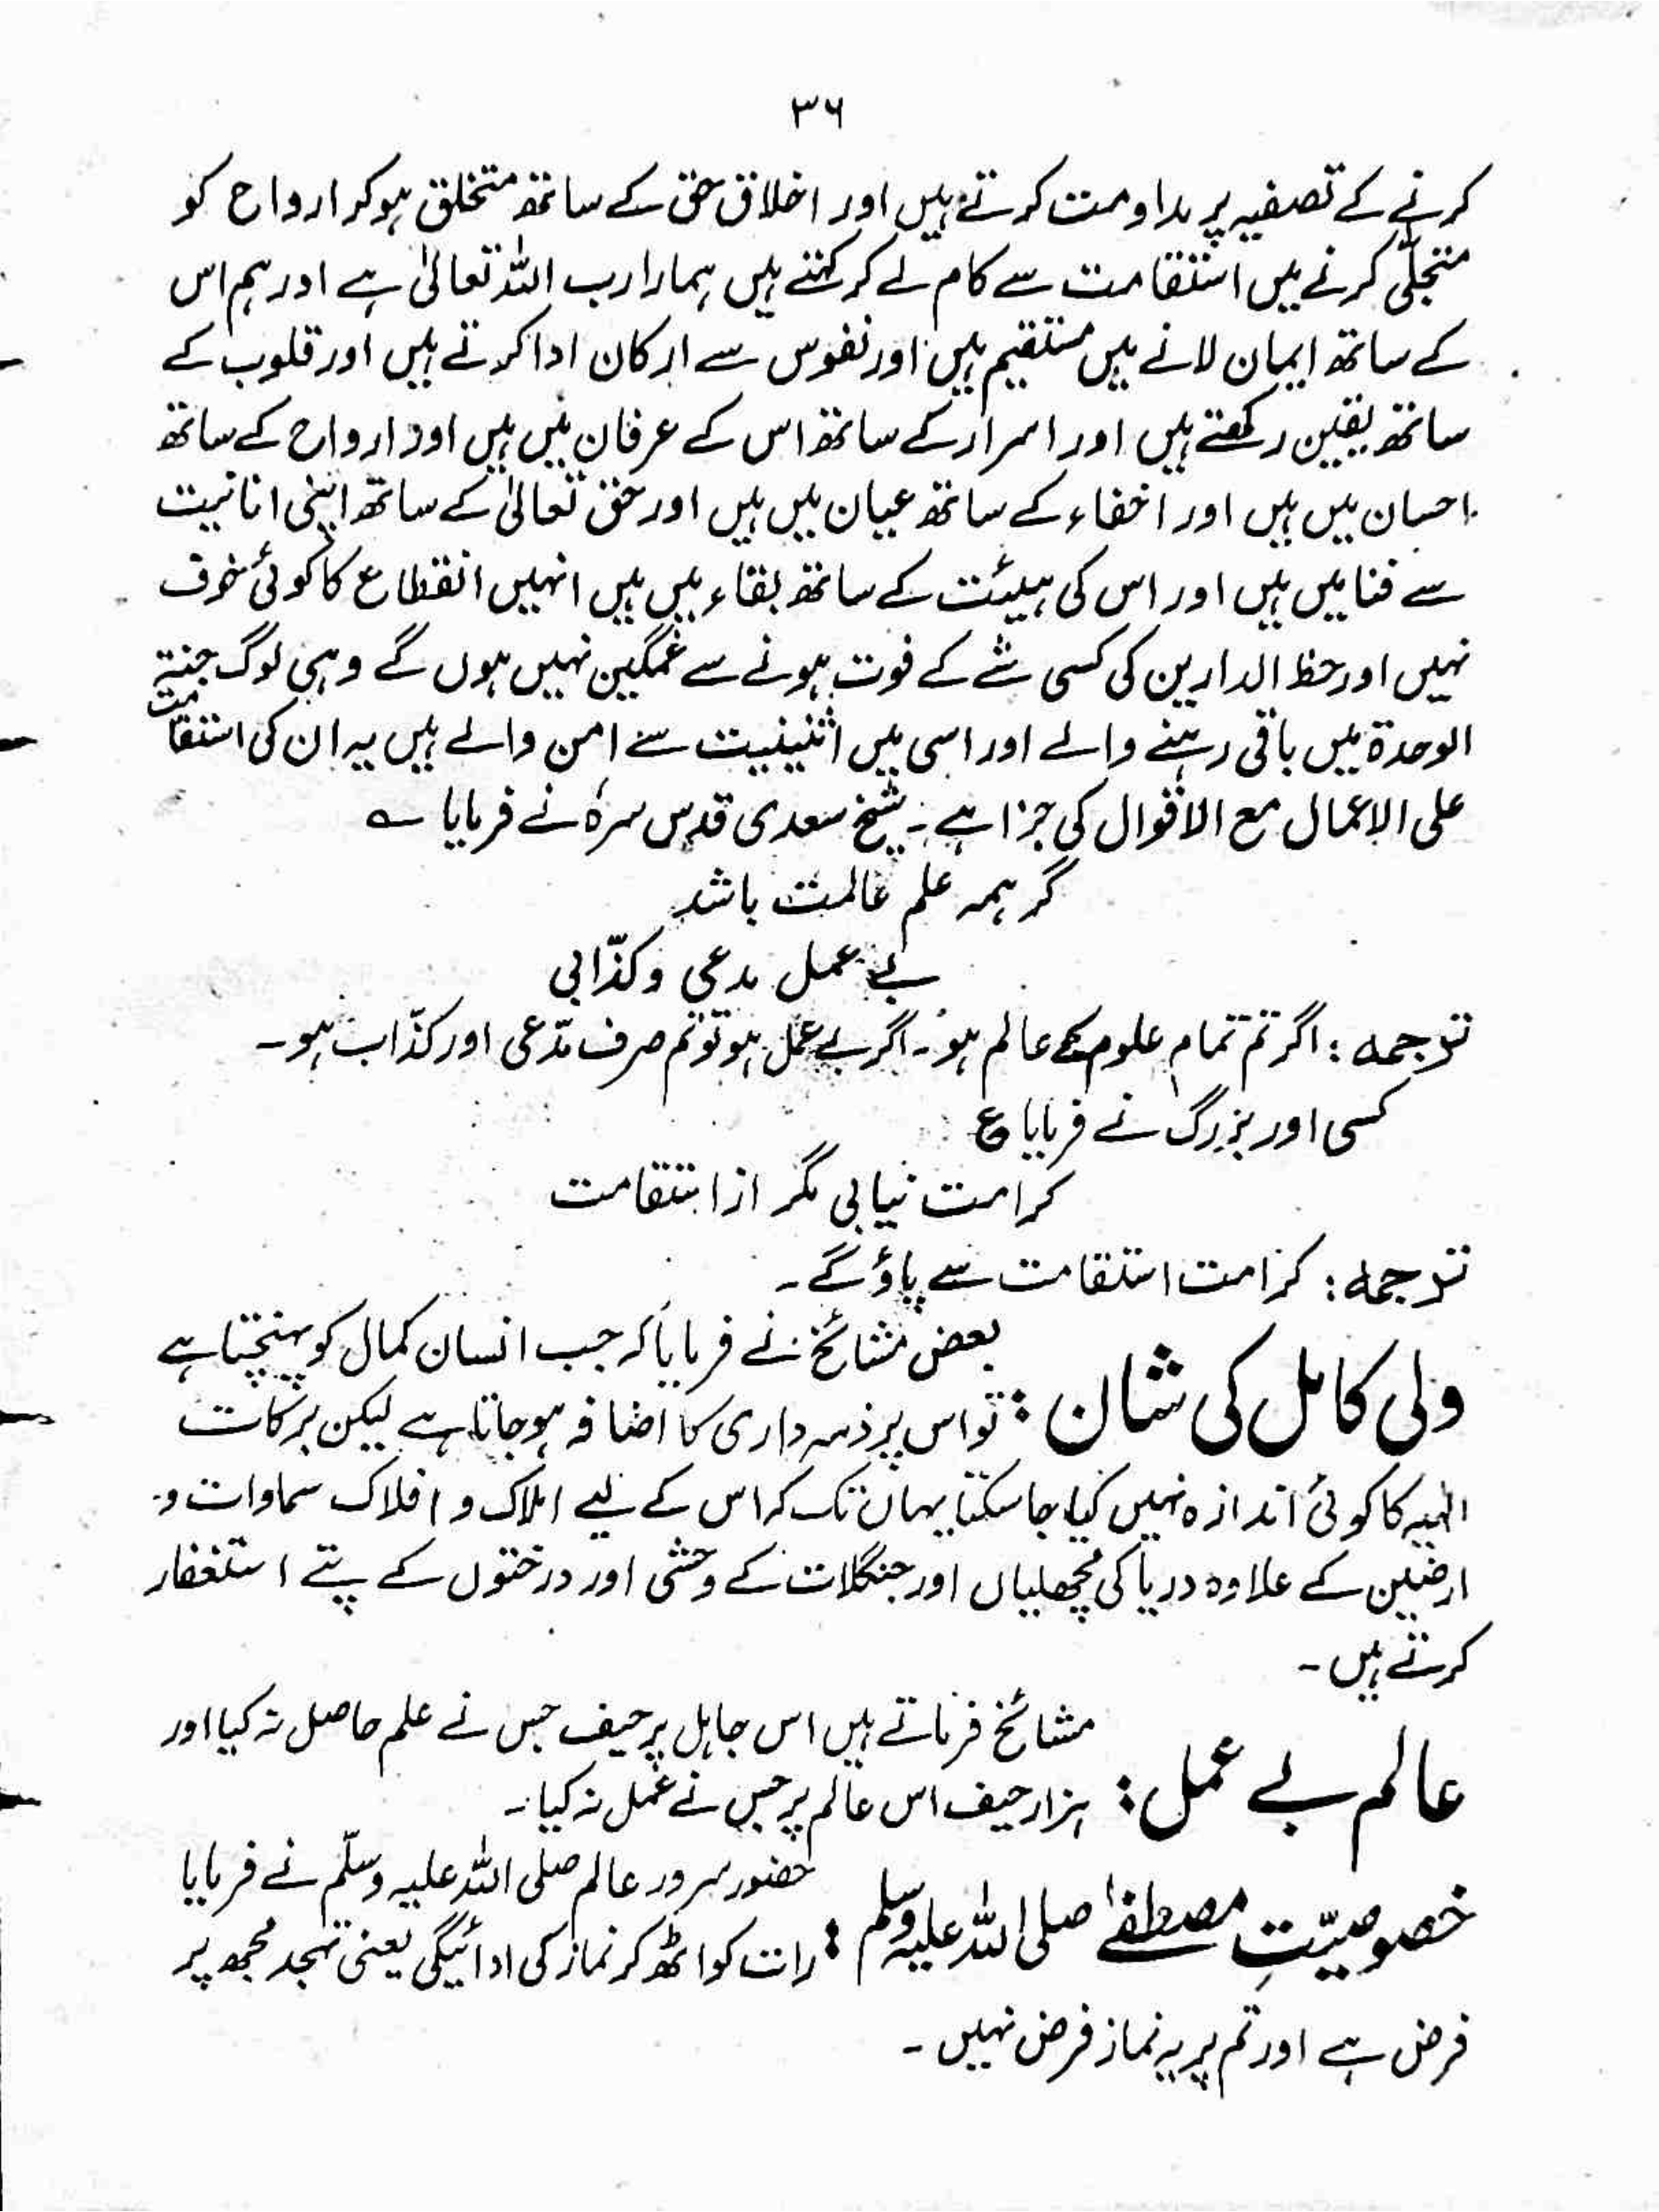 ۳۶
کرنے کے تصفیہ پر مداومت کرتے ہیں اور اخلاق حق کے ساتھ متخلق ہوکر ارواح کو
متجلّی کرنے میں استقامت سے کام لے کر کہتے ہیں ہمارا رب اللہ تعالیٰ ہے اور ہم اس
کے ساتھ ایمان لانے میں مستقیم ہیں اور نفوس سے ارکان ادا کرتے ہیں اور قلوب کے
ساتھ یقین رکھتے ہیں اور اسرار کے ساتھ اس کے عرفان میں ہیں اور ارواح کے ساتھ
احسان میں ہیں اور اخفاء کے ساتھ عیان میں ہیں اور حق تعالیٰ کے ساتھ اپنی انانیت
سے فنا میں ہیں اور اس کی ہیئت کے ساتھ بقاء میں ہیں انہیں انقطاع کا کوئی خوف
نہیں اور حظ الدارین کی کسی شے کے فوت ہونے سے غمگین نہیں ہوں گے وہی لوگ جنتہ
الوحدۃ میں باقی رہنے والے اور اسی میں اثنینیت سے امن والے ہیں یہ ان کی استقامت
علی الاعمال مع الاقوال کی جزا ہے ۔ شیخ سعدی قدس سرہٗ نے فرمایا ؎
گر ہمہ علم عالمت باشد
بے عمل مدعی و کذّابی
ترجمہ : اگر تم تمام علوم کے عالم ہو ۔ اگر بے عمل ہو تو تم صرف مدّعی اور کذّاب ہو ۔
کسی اور بزرگ نے فرمایا ع
کرامت نیابی مگر از استقامت
ترجمہ : کرامت استقامت سے پاؤ گے ۔
ولی کامل کی شان : بعض مشائخ نے فرمایا کہ جب انسان کمال کو پہنچتا ہے
تو اس پر ذمہ داری کا اضافہ ہو جاتا ہے لیکن برکات
الٰہیہ کا کوئی اندازہ نہیں کیا جا سکتا یہاں تک کہ اس کے لیے املاک و افلاک سماوات و
ارضین کے علاوہ دریا کی مچھلیاں اور جنگلات کے وحشی اور درختوں کے پتے استغفار
کرتے ہیں ۔
عالم بے عمل : مشائخ فرماتے ہیں اس جاہل پر حیف جس نے علم حاصل نہ کیا اور
ہزار حیف اس عالم پر جس نے عمل نہ کیا ۔
خصوصیّتِ مصطفےٰ صلی اللہ علیہ وسلم : حضور سرور عالم صلی اللہ علیہ وسلّم نے فرمایا
رات کو اٹھ کر نماز کی ادائیگی یعنی تہجد مجھ پر
فرض ہے اور تم پر یہ نماز فرض نہیں ۔